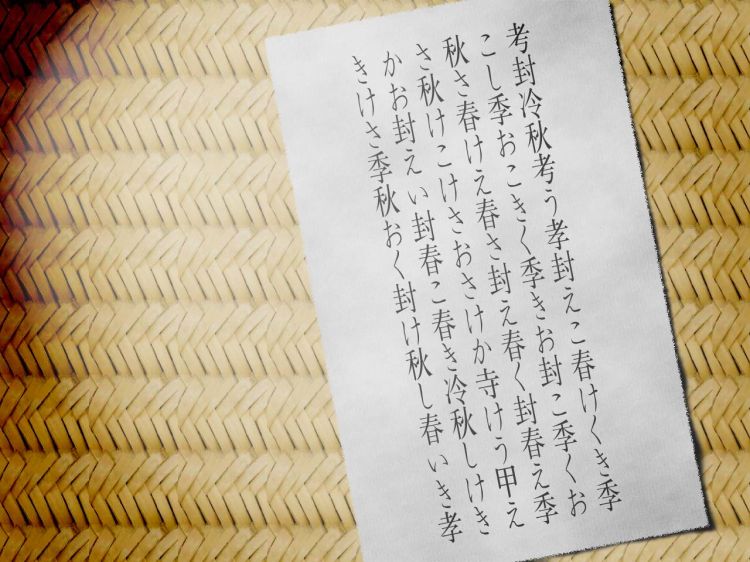 考封冷秋考う孝封えこ春けくき季
こし季おこきく季きお封こ季くお
秋さ春けえ春さ封え春く封春え季
さ秋けこけさおさけか寺けう甲え
かお封えい封春こ春き冷秋しけき
きけさ季秋おく封け秋し春いき孝